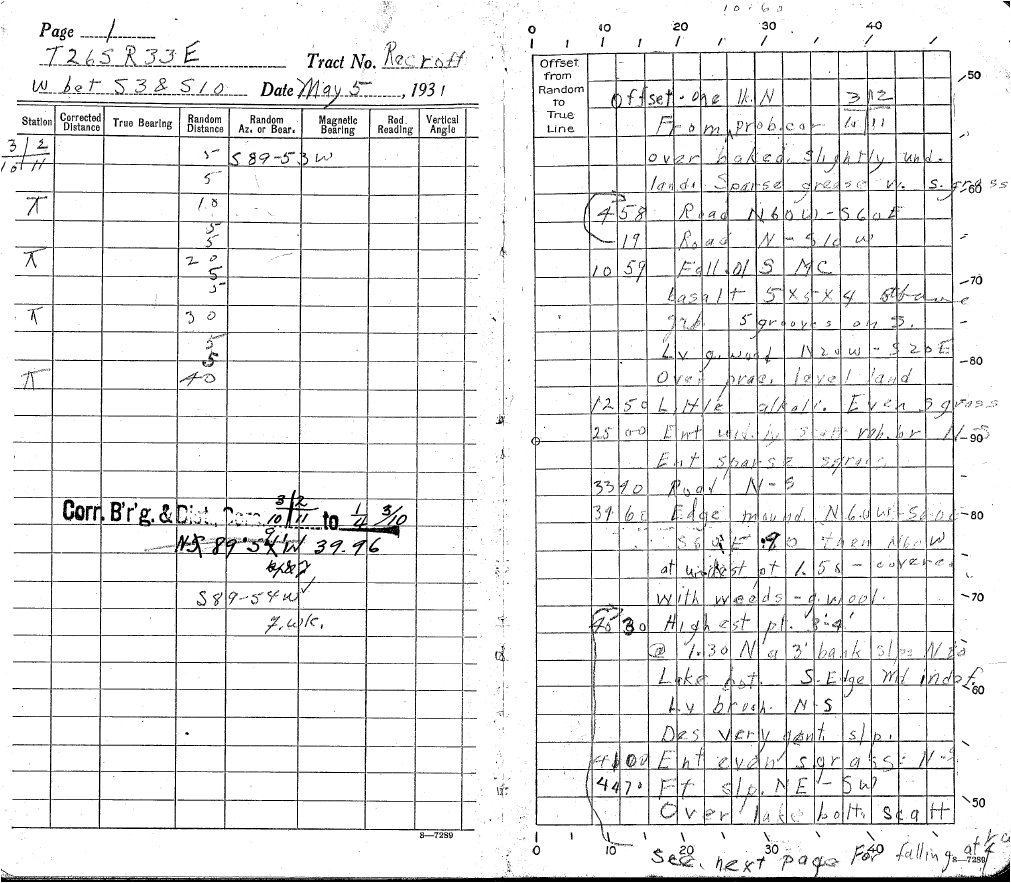 Page 1
T26S R33E Tract No. Recroft
W bet S3 & S10 Date May 5, 1931
Station Corrected Distance True Bearing Random Distance Random Az. or Bear. Magnetic Bearing Rod Reading Vertical Angle
3 2
10 11
5 S 89-53 W
5
π 10
5
5
π 20
5
5
π 30
5
5
π 40
Corr. B'r'g. & Dist. Cors. 3 2 10 11 to 1/4 3/10
39.96
S 89-54 W
8—7289
10.60
0 10 20 30 40
Offset from Random to True Line
50 60 70 80 90 80 70 60 50
Offset-one lk. N 3 | 2
From prob. cor 10 | 11
over baked, slightly und.
land. Sparse grease w. s. grass
4 58 Road N60W-S60E
19 Road N-S10W
10 59 Fall. of S MC
basalt 5x5x4 above
grd. 5 grooves on S.
Lv g.wood N20W-S20E
Over prac. level land
12 50 Little alkali. Even s grass
25 00 Ent wid. ly scatt rab. br N-S
Ent sparse sgrass
33 90 Road N-S
39 60 Edge mound N60W-S60E
S60E .90 then N60W
at widest pt 1.50 - covered
with weeds - g.wood.
45 30 Highest pt. 3-4'
@ 1.30 N a 3' bank slps N to
Lake bot. S-Edge Md indef.
Lv brush. N-S
Des very gent. slp.
41 00 Ent even sgrass: N-S
44 70 Ft slp. NE-SW
Over lake bott. scatt
0 10 20 30 40
8—7289
See next page For falling at 1/4